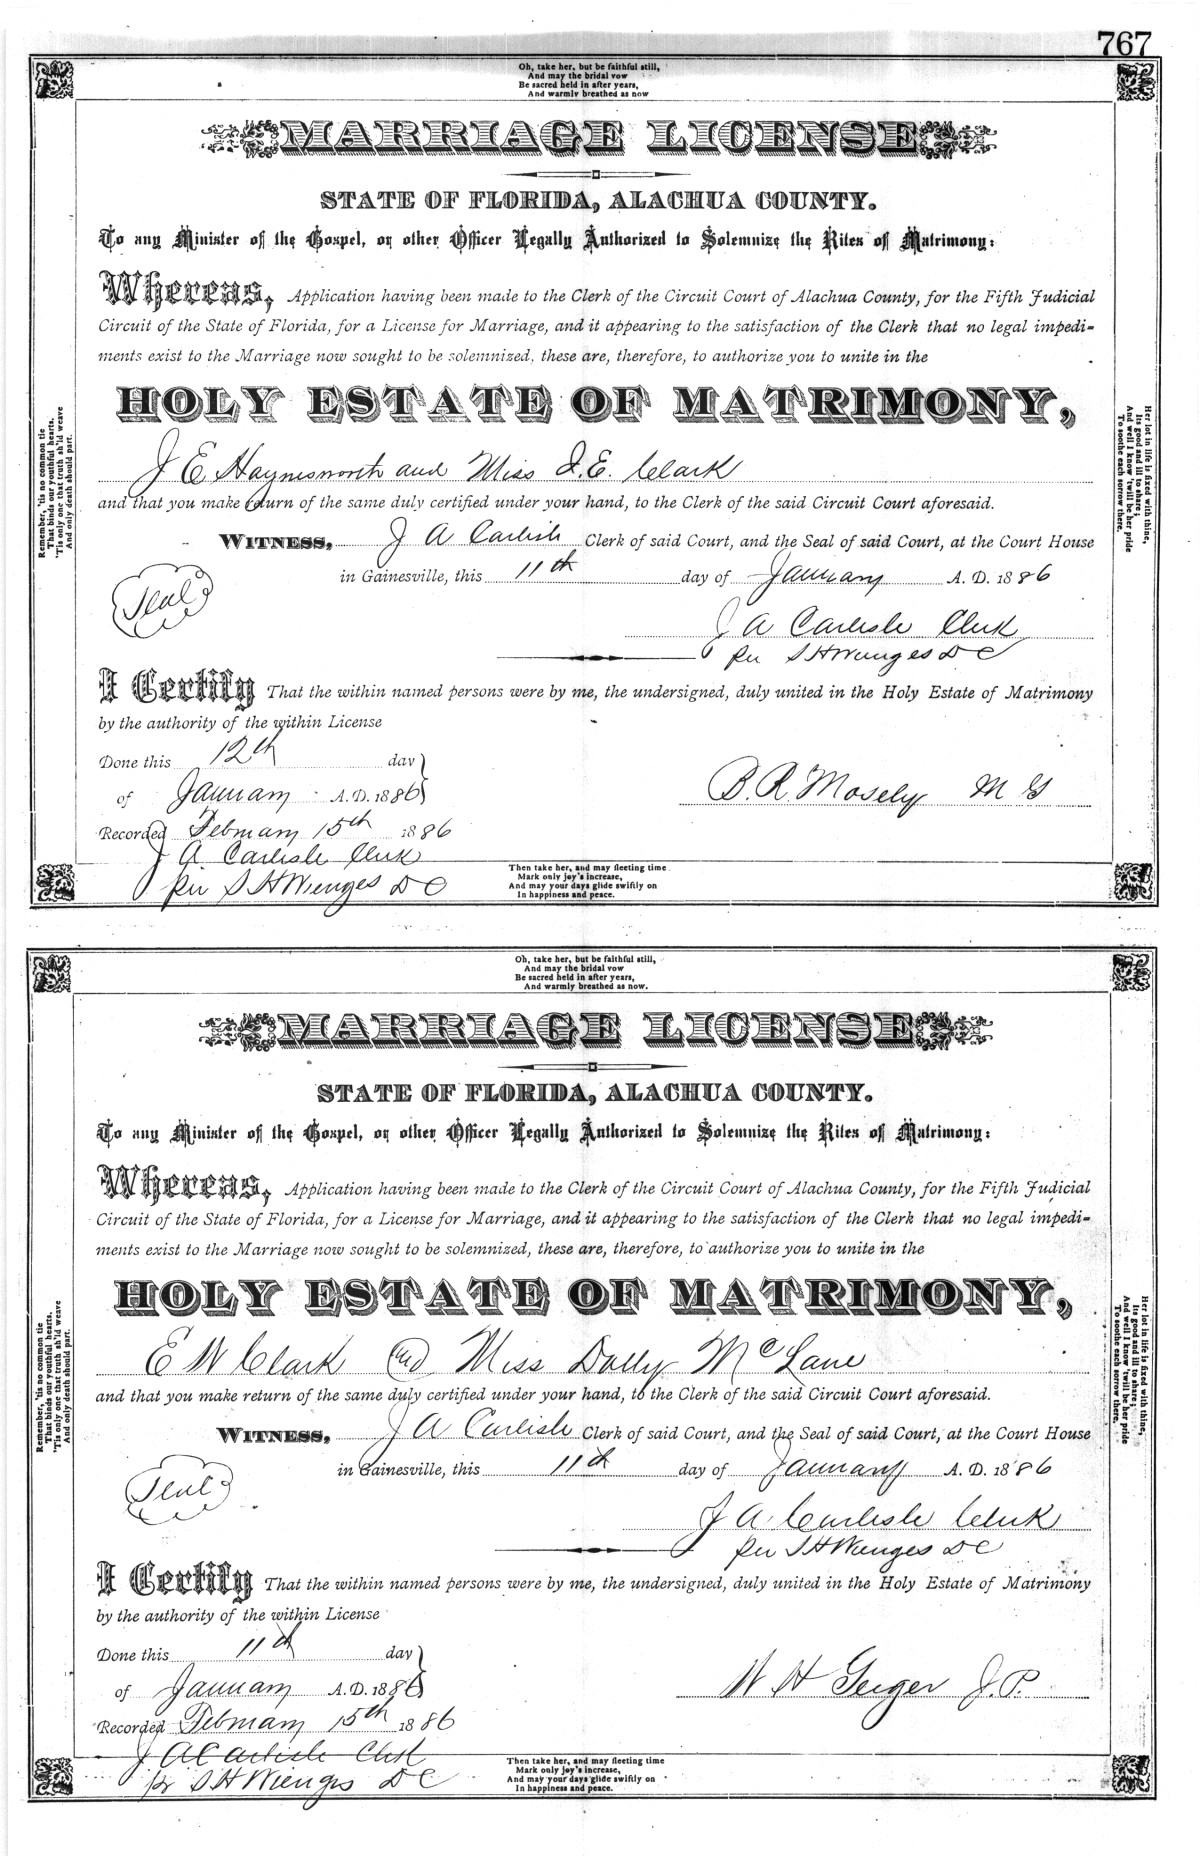 767
Oh, take her, but be faithful still,
And may the bridal vow
Be sacred held in after years,
And warmly breathed as now
MARRIAGE LICENSE
STATE OF FLORIDA, ALACHUA COUNTY.
To any Minister of the Gospel, or other Officer Legally Authorized to Solemnize the Rites of Matrimony:
Whereas, Application having been made to the Clerk of the Circuit Court of Alachua County, for the Fifth Judicial
Circuit of the State of Florida, for a License for Marriage, and it appearing to the satisfaction of the Clerk that no legal impedi-
ments exist to the Marriage now sought to be solemnized, these are, therefore, to authorize you to unite in the
HOLY ESTATE OF MATRIMONY,
J E Haynesworth and Miss I. E. Clark
and that you make return of the same duly certified under your hand, to the Clerk of the said Circuit Court aforesaid.
WITNESS, J A Carlisle Clerk of said Court, and the Seal of said Court, at the Court House
in Gainesville, this 11th day of January A. D. 1886
Seal
J A Carlisle Clerk
per S H Wienges D C
I Certify That the within named persons were by me, the undersigned, duly united in the Holy Estate of Matrimony
by the authority of the within License
Done this 12th day
of January A.D. 1886
B. R. Mosely M G
Recorded February 15th 1886
J A Carlisle Clerk
per S H Wienges D C
Remember, 'tis no common tie
That binds our youthful hearts.
'Tis only one that truth sh'ld weave
And only death should part.
Her lot in life is fixed with thine,
Its good and ill to share;
And well I know 'twill be her pride
To soothe each sorrow there.
Then take her, and may fleeting time
Mark only joy's increase,
And may your days glide swiftly on
In happiness and peace.
Oh, take her, but be faithful still,
And may the bridal vow
Be sacred held in after years,
And warmly breathed as now.
MARRIAGE LICENSE
STATE OF FLORIDA, ALACHUA COUNTY.
To any Minister of the Gospel, or other Officer Legally Authorized to Solemnize the Rites of Matrimony:
Whereas, Application having been made to the Clerk of the Circuit Court of Alachua County, for the Fifth Judicial
Circuit of the State of Florida, for a License for Marriage, and it appearing to the satisfaction of the Clerk that no legal impedi-
ments exist to the Marriage now sought to be solemnized, these are, therefore, to authorize you to unite in the
HOLY ESTATE OF MATRIMONY,
E W Clark and Miss Dolly McLane
and that you make return of the same duly certified under your hand, to the Clerk of the said Circuit Court aforesaid.
WITNESS, J A Carlisle Clerk of said Court, and the Seal of said Court, at the Court House
in Gainesville, this 11th day of January A. D. 1886
Seal
J A Carlisle Clerk
per S H Wienges D C
I Certify That the within named persons were by me, the undersigned, duly united in the Holy Estate of Matrimony
by the authority of the within License
Done this 11th day
of January A.D. 1886
W H Geiger J. P.
Recorded February 15th 1886
J A Carlisle Clrk
pr S H Wienges D C
Remember, 'tis no common tie
That binds our youthful hearts.
'Tis only one that truth sh'ld weave
And only death should part.
Her lot in life is fixed with thine,
Its good and ill to share;
And well I know 'twill be her pride
To soothe each sorrow there.
Then take her, and may fleeting time
Mark only joy's increase,
And may your days glide swiftly on
In happiness and peace.